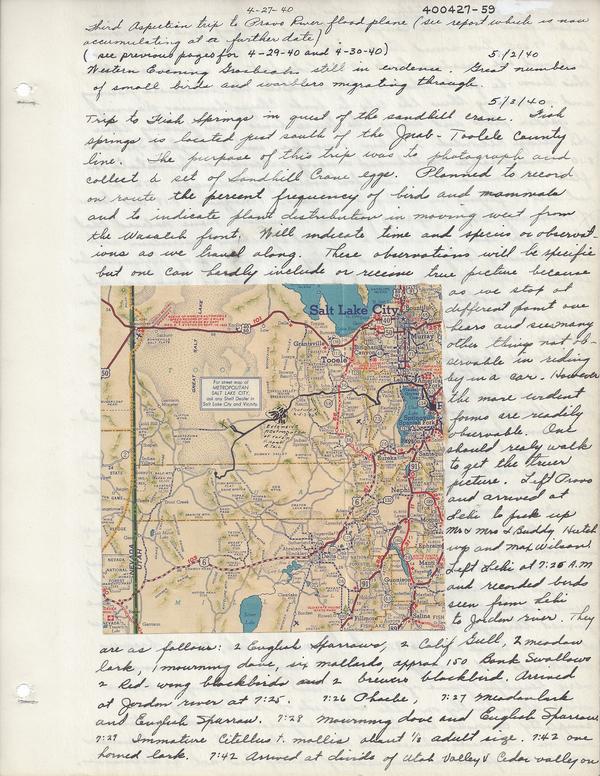 4-27-40
400427-59
Third Aspection trip to Provo River flood plane (see report which is now
accumulating at a further date)
(see previous pages for 4-29-40 and 4-30-40) 5/2/40
Western Evening Grosbeaks still in evidence. Great numbers
of small birds and warblers migrating through.
5/3/40
Trip to Fish Springs in quest of the sandhill crane. Fish
springs is located just south of the Juab-Tooele County
line. The purpose of this trip was to photograph and
collect a set of Sandhill Crane eggs. Planned to record
on route the percent frequency of birds and mammals
and to indicate plant distribution in moving west from
the Wasatch front. Will indicate time and species or observat-
ions as we travel along. These observations will be specific
but one can hardly include or receive true picture because
as we stop at
different point one
hears and sees many
other things not ob-
servable in riding
by in a car. However
the more evident
forms are readily
observable. One
should realy walk
to get the truer
picture. Left Provo
and arrived at
Lehi to pick up
Mr & Mrs L. Buddy Hutch
ings and Max Wilson
Left Lehi at 7:20 A.M
and recorded birds
seen from Lehi
to Jordon river. They
are as follows: 2 English Sparrows, 2 Calif Gull, 2 meadow
lark, 1 mourning dove, six mallards, approx 150 Bank Swallows
2 Red-wing blackbirds and 2 brewers blackbird. Arrived
at Jordon river at 7:25. 7:26 Phoebe, 7:27 Meadowlark
and English Sparrow. 7:28 mourning dove and English Sparrow
7:29 Immature Citellus t. mollis about 1/2 adult size. 7:42 one
horned lark. 7:42 Arrived at divide of Utah Valley & Cedar valley on
Salt Lake City
GREAT SALT LAKE
Grantsville
Tooele
Murray
For street map of
METROPOLITAN
SALT LAKE CITY,
ask any Shell Dealer in
Salt Lake City and Vicinity
Eureka
Nephi
Trout Creek
Gunnison
Fillmore
Ephraim
Salina
NEVADA
UTAH
Garrison